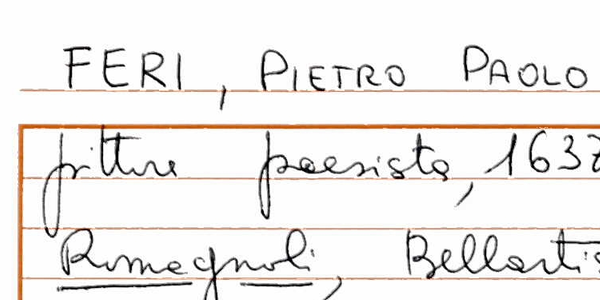 FERI, PIETRO PAOLO
pittore paesista, 1637
Romagnoli, Bellartis